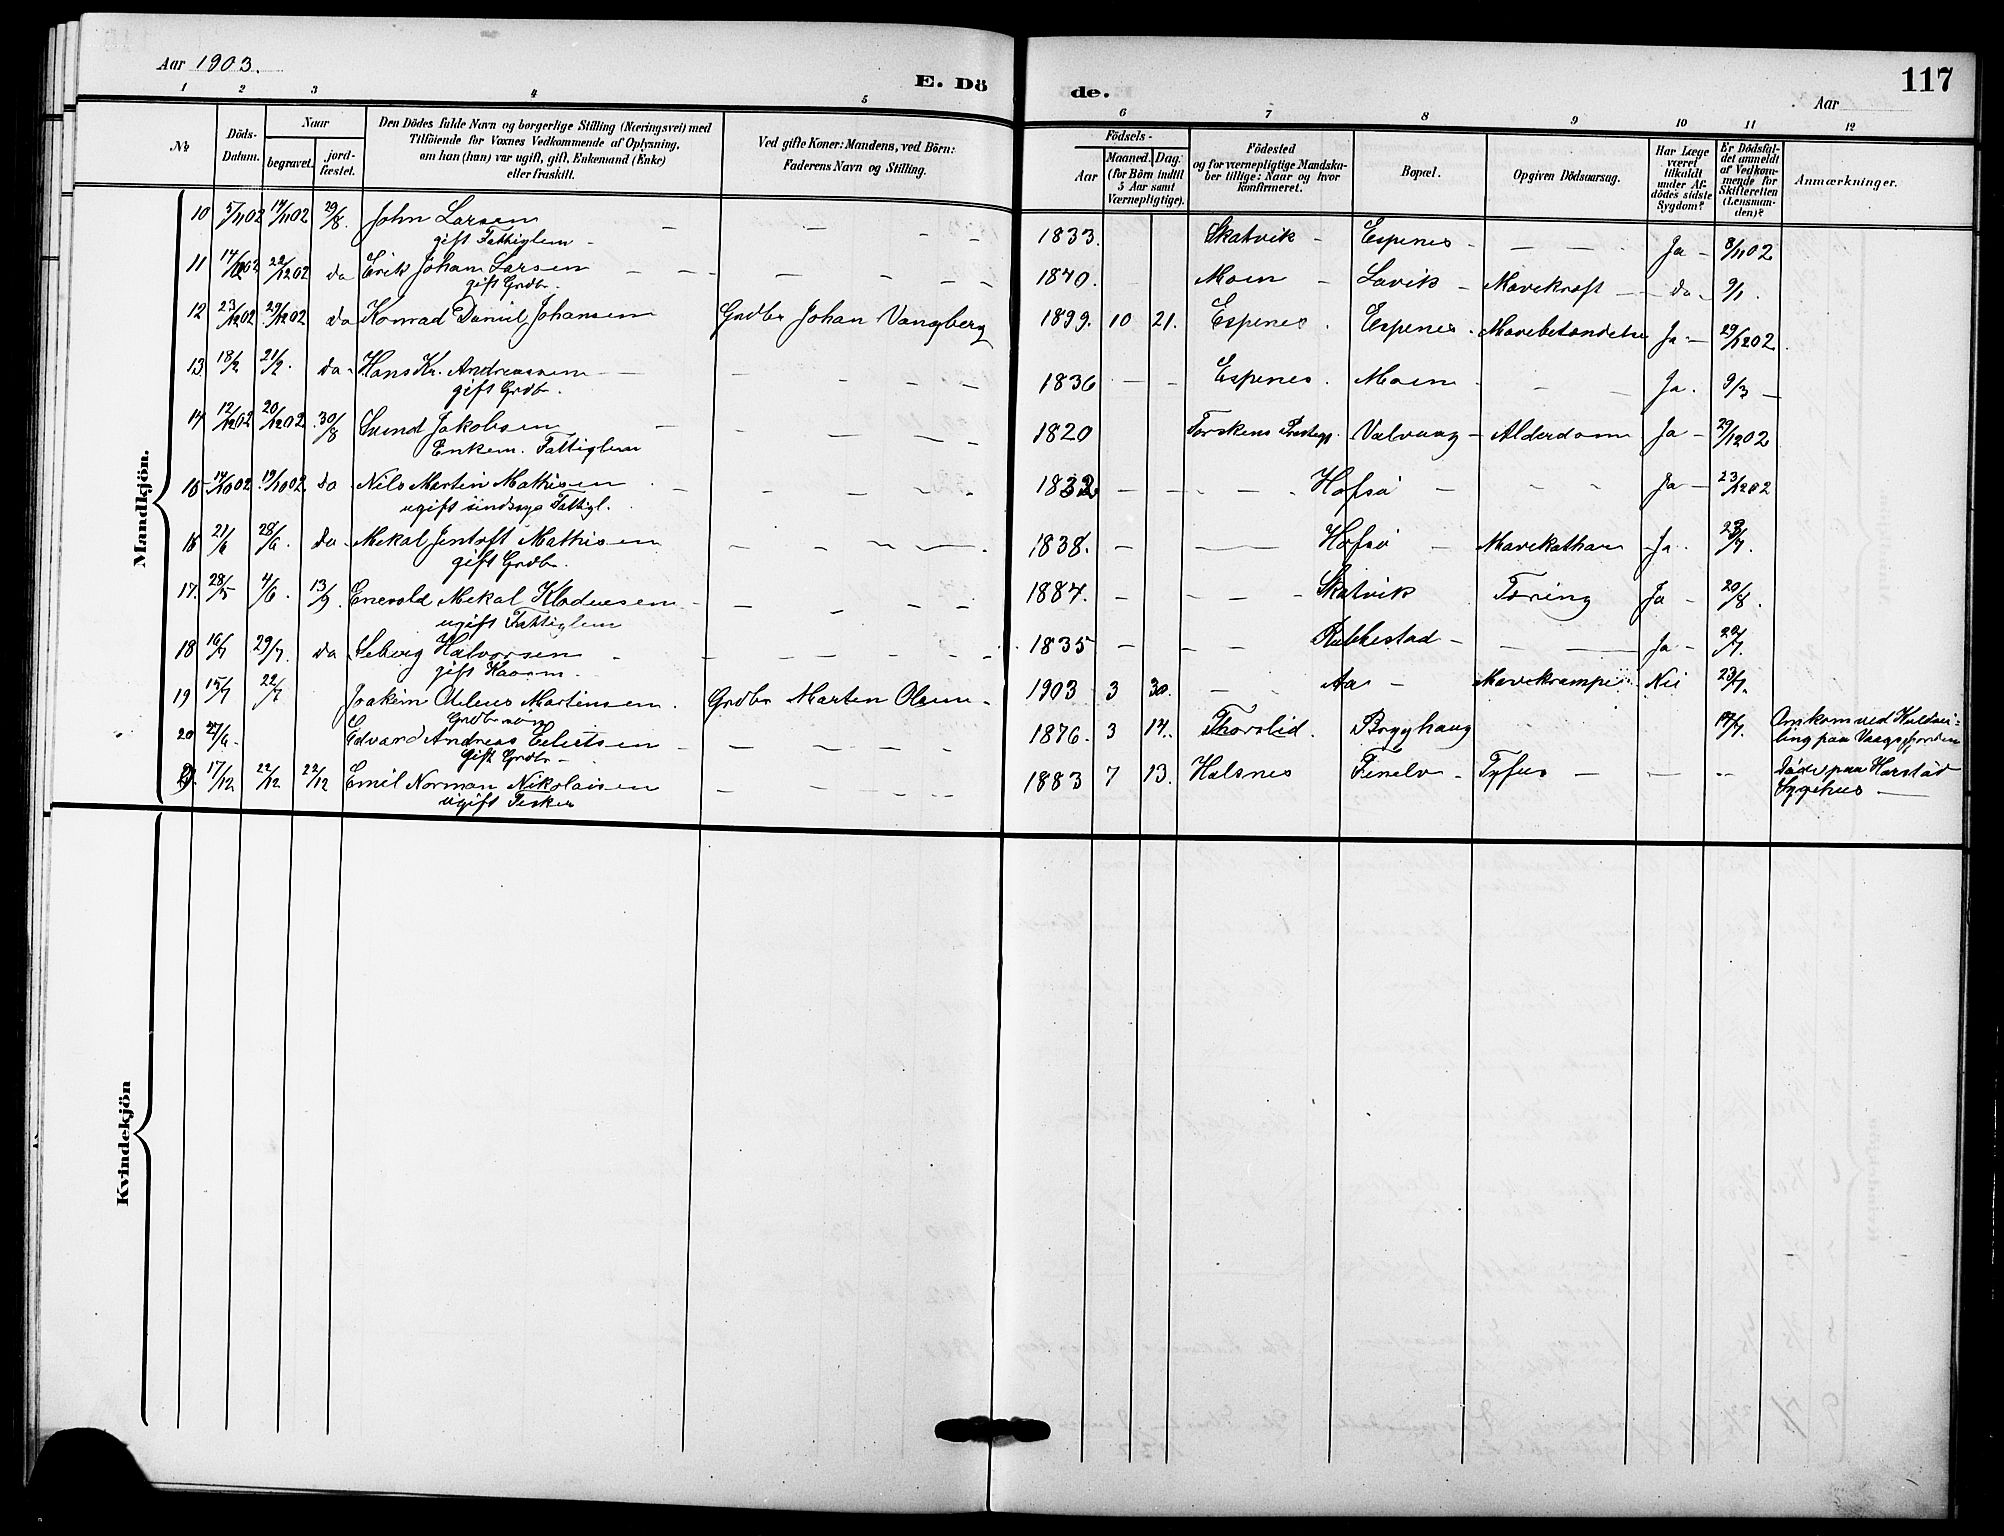 Aar 1903.
E. Dö de.
Aar
117
1 2 3 4 5 6 7 8 9 10 11 12
№
Döds-Datum.
Naar
begravet.
jord-fæstet.
Den Dödes fulde Navn og borgerlige Stilling (Næringsvei) med
Tilföiende for Voxnes Vedkommende af Oplysning,
om han (hun) var ugift, gift, Enkemand (Enke)
eller fraskilt.
Ved gifte Koner: Mandens, ved Börn:
Faderens Navn og Stilling.
Födsels-
Aar
Maaned. Dag.
(for Börn indtil
5 Aar samt
Værnepligtige).
Födested
og for værnepligtige Mandska-
ber tillige: Naar og hvor
konfirmeret.
Bopæl.
Opgiven Dödsaarsag.
Har Læge
været
tilkaldt
under Af-
dödes sidste
Sygdom?
Er Dödsfal-
det anmeldt
af Vedkom-
mende for
Skifteretten
(Lensman-
den)?
Anmærkninger.
Mandkjön.
10 5/11 02 14/11 02 29/8. John Larsen — — — 1833. Skatvik — Espenes — — — Ja — 8/11 02
gift Fattiglem —
11 17/12 02 22/12 02 do Erik Johan Larsen — — — 1840. Moen — Lavik — Mavekræft — do — 9/1.
gift Grdbr.
12 23/12 02 29/12 02 do Konrad Daniel Johansen Grdbr Johan Vangberg 1899. 10 21. Espenes. Espenes. Mavebetændelse Ja — 29/12 02
13 18/2 21/2. do — Hans Kr. Andreassen — — 1836 — — Espenes. Moen — — Ja. 9/3 —
gift Grdbr.
14 12/12 02 20/12 02 30/8 Svend Jakobsen — — 1820 Torskens Prestegj. Valvaag — Alderdom Ja — 29/12 02
Enkem. Fattiglem
15 14/10 02 19/10 02 do Nils Martin Mathisen — — 1832 — — Hofsö — — Ja — 23/12 02
ugift sindssyg Fattigl.
16 21/6 28/6. do — Mekal Jentoft Mathisen — — 1838. — — Hofsö — Mavekathar — Ja. 23/7.
gift Grdbr.
17. 28/5 4/6. 13/9. Enevold Mekal Kladiusen — — 1884. — — Skatvik Tæring Ja — 20/8.
ugift Fattiglem
18 16/7 29/7. do Seberg Halvorsen — — 1835 — — Rubbestad — — Ja — 22/7.
gift Kaarm.
19 15/7 22/7 Joakim Odleus Martinsen. Grdbr Marten Olsen — 1903 3 30. — Aa — Mavekrampe Nei 23/7.
Grdbr. søn
20 27/6. Edvard Andreas Eliitsen — — 1876. 3 14. Thorslid. Brygghaug 17/7. Omkom ved Kuldsei-
ling paa Vaagsfjorden
Gift Grdbr —
21. 17/12 22/12 22/12 Emil Norman Nikolaisen — — 1883 7 13. Halsnes Finelv — Tyfus — — — Döde paa Harstad
Sygehus —
ugift Fisker
Kvindekjön